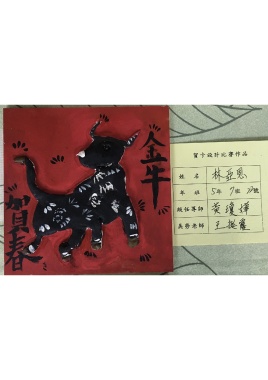 金牛
賀春
賀卡設計比賽作品
姓名 林亞恩
年班 5年7班
級任導師 黃瓊
美勞老師 王